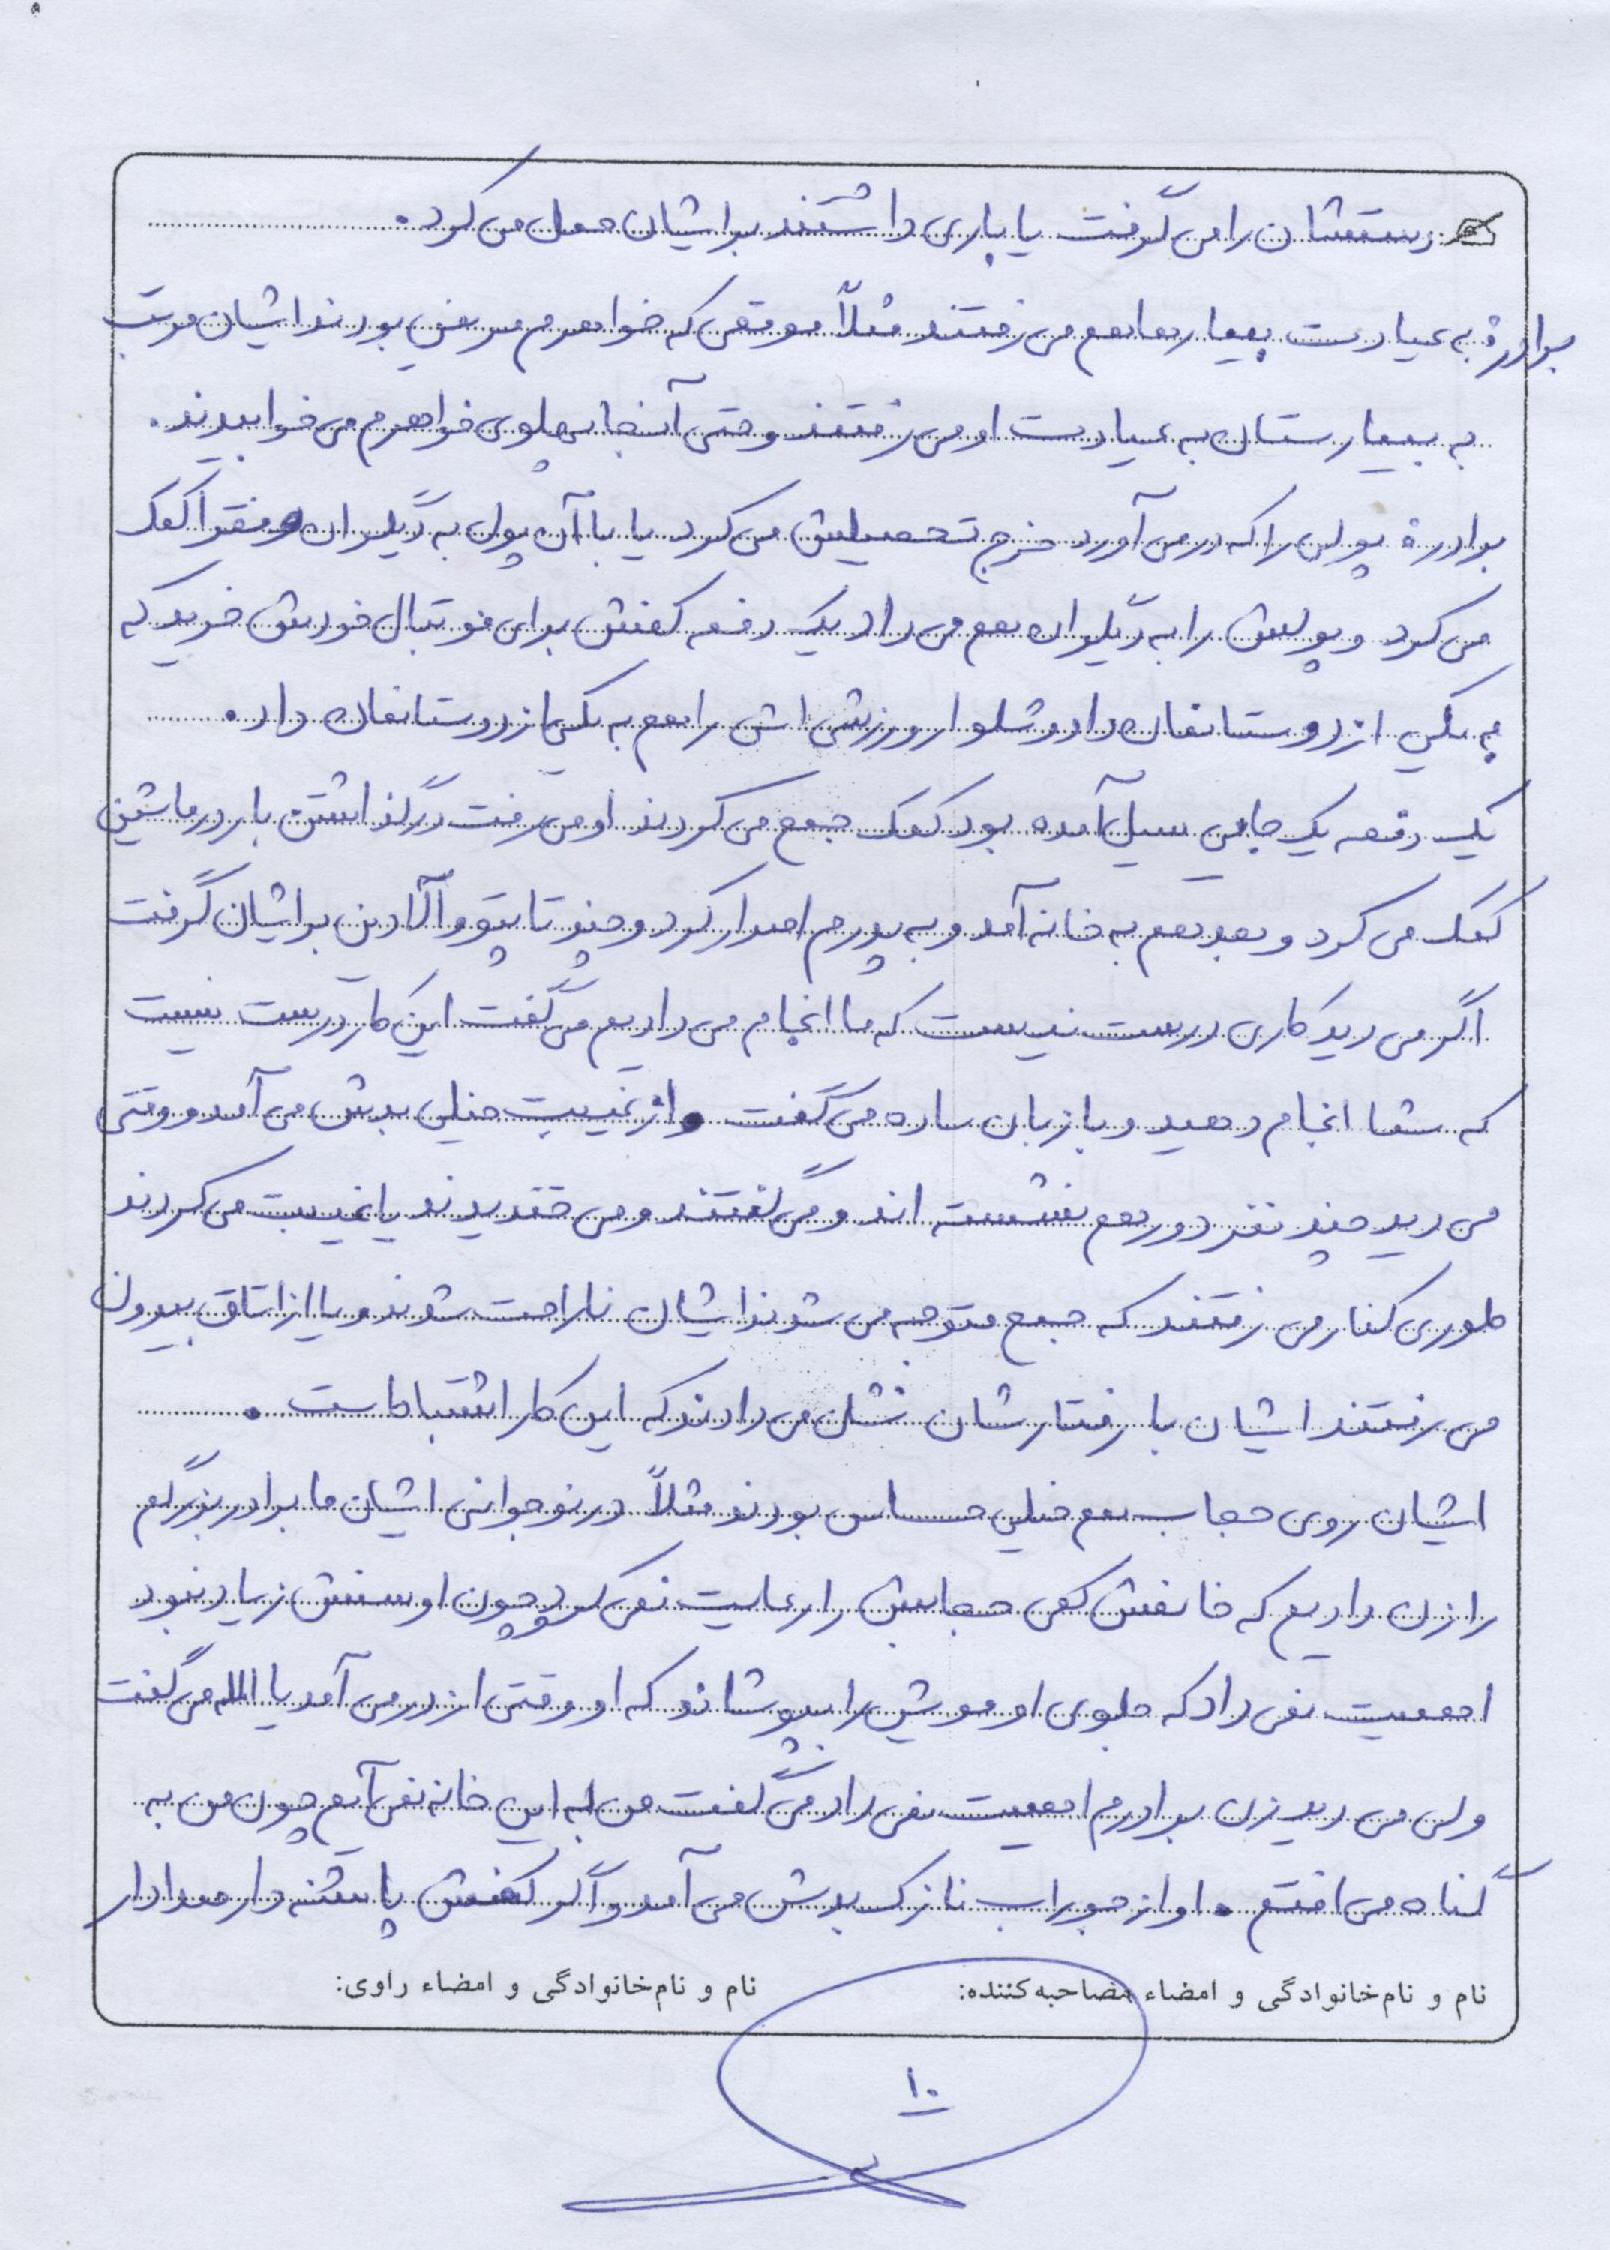 دستشان را می گرفت یا باری داشتند برایشان حمل می کرد.
برادرم به عیادت بیمارها هم می رفتند مثلاً موقعی که خواهرم مریض بودند ایشان مرتب
به بیمارستان به عیادت او می رفتند و حتی آنجا پهلوی خواهرم می خوابیدند.
برادرم پولی را که در می آورد خرج تحصیلش می کرد یا با آن پول به دیگران و فقرا کمک
می کرد و پولش را به دیگران هم می داد یک دفعه کفش برای فوتبال خودش خرید که
به یکی از دوستانمان داد و شلوار ورزشی اش را هم به یکی از دوستانمان داد.
یک دفعه یک جایی سیل آمده بود کمک جمع می کردند او می رفت در گذاشتن بار در ماشین
کمک می کرد و بعد هم به خانه آمد و به پدرم اصرار کرد و چند تا پتو و برایشان گرفت
اگر می دید کاری درست نیست که ما انجام می دادیم می گفت این کار درست نیست
که شما انجام دهید و با زبان ساده می گفت و از غیبت خیلی بدش می آمد و وقتی
می دید چند نفر دور هم نشسته اند و می گفتند و می خندیدند یا غیبت می کردند
طوری کنار می رفتند که جمع متوجه می شوند ایشان ناراحت شدند و یا از اتاق بیرون
می رفتند ایشان با رفتارشان نشان می دادند که این کار اشتباه است.
ایشان روی حجاب هم خیلی حساس بودند مثلاً در نوجوانی ایشان ما برادر بزرگم
را زن دادیم که خانمش کمی حجابش را رعایت نمی کرد چون او سنش زیاد نبود
اهمیت نمی داد که جلوی او مویش را بپوشاند که او وقتی از در می آمد یا الله می گفت
ولی می دید زن برادرم اهمیت نمی داد می گفت من به این خانه نمی آیم چون من به
گناه می افتم. او از جوراب نازک بدش می آمد و اگر کفش پاشنه دار صدادار
نام و نام‌خانوادگی و امضاء مصاحبه‌کننده: نام و نام‌خانوادگی و امضاء راوی:
۱۰